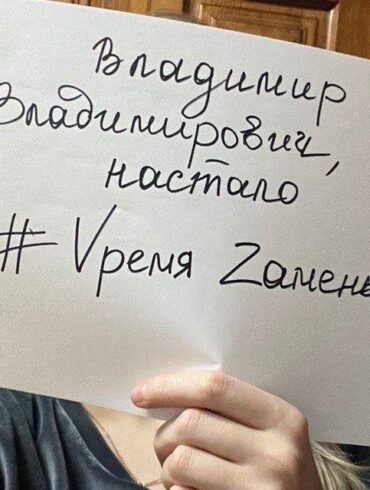 Владимир
Владимирович,
настало
# Vремя Zамены